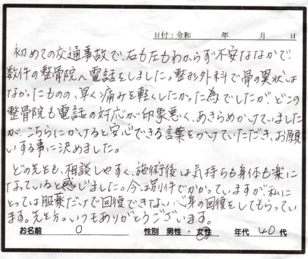 日付:令和 年 月 日
初めての交通事故で、右も左もわからず不安ななかで、
数件の整骨院へ電話をしました。整形外科で骨の異状は
なかったものの、早く痛みを軽くしたかった為でしたが、どこの
整骨院も電話の対応が印象悪く、あきらめかけていました
が、こちらにかけると安心できる言葉をかけていただき、お願
いする事に決めました。
どの先生も、相談しやすく、施術後は気持ちも身体も楽に
なっていると感じました。今は別件でかかっていますが、私に
とっては服薬だけで回復できない心身の回復をしてもらってい
ます。先生方。いつもありがとうございます。
お名前 O 性別 男性・女性 年代 40代